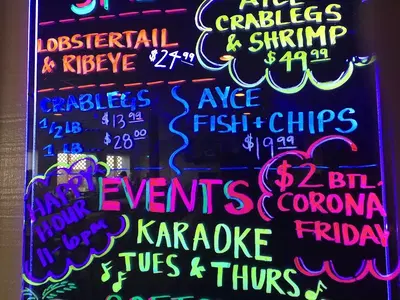 LOBSTERTAIL
& RIBEYE $24.99
AYCE
CRABLEGS
& SHRIMP
$49.99
CRABLEGS
1/2 LB... $13.99
1 LB... $28.00
AYCE
FISH + CHIPS
$19.99
HAPPY
HOUR
11-6pm
EVENTS
KARAOKE
TUES & THURS
$2 BTL.
CORONA
FRIDAY